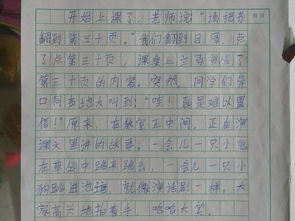 开始上课了，老师说：“请把书
翻到第三十页。”我们翻到目录，点
了点第三十页，课桌上马
第三十页的内容。突然，同学们异
口同声地大叫到：“哇！真是难以置
信！”原来，在教室正中间，正在演
课文里讲的故事。一会儿一只小兔
在草丛中跳来跳去，一会儿一只小
狗 进池塘，就像演话剧一样。大
家高兴地拍着手，哈哈大笑。